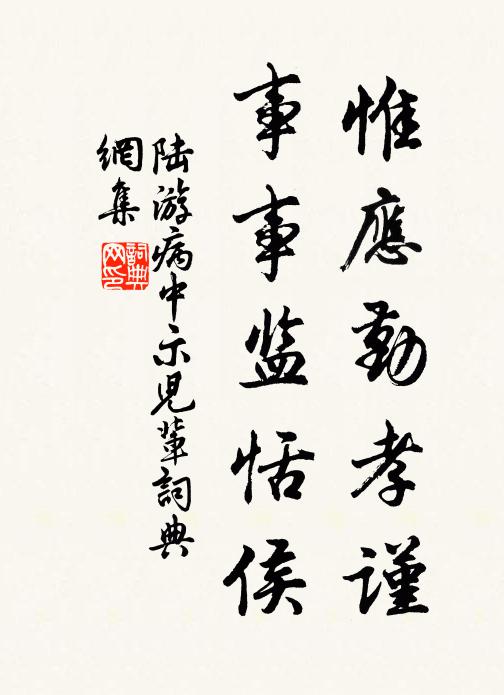 惟應勤孝謹
事事监恬侯
陆游病中示児輩詞典
網集
詞典
网印